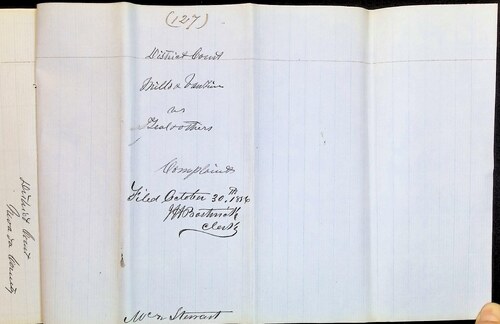 (127)
District Court
Mills & Vantine
vs
& others
Complaint
Filed October 30th 1856
J H Bostwick
Clerk
McN Stewart
District Court
Nevada County